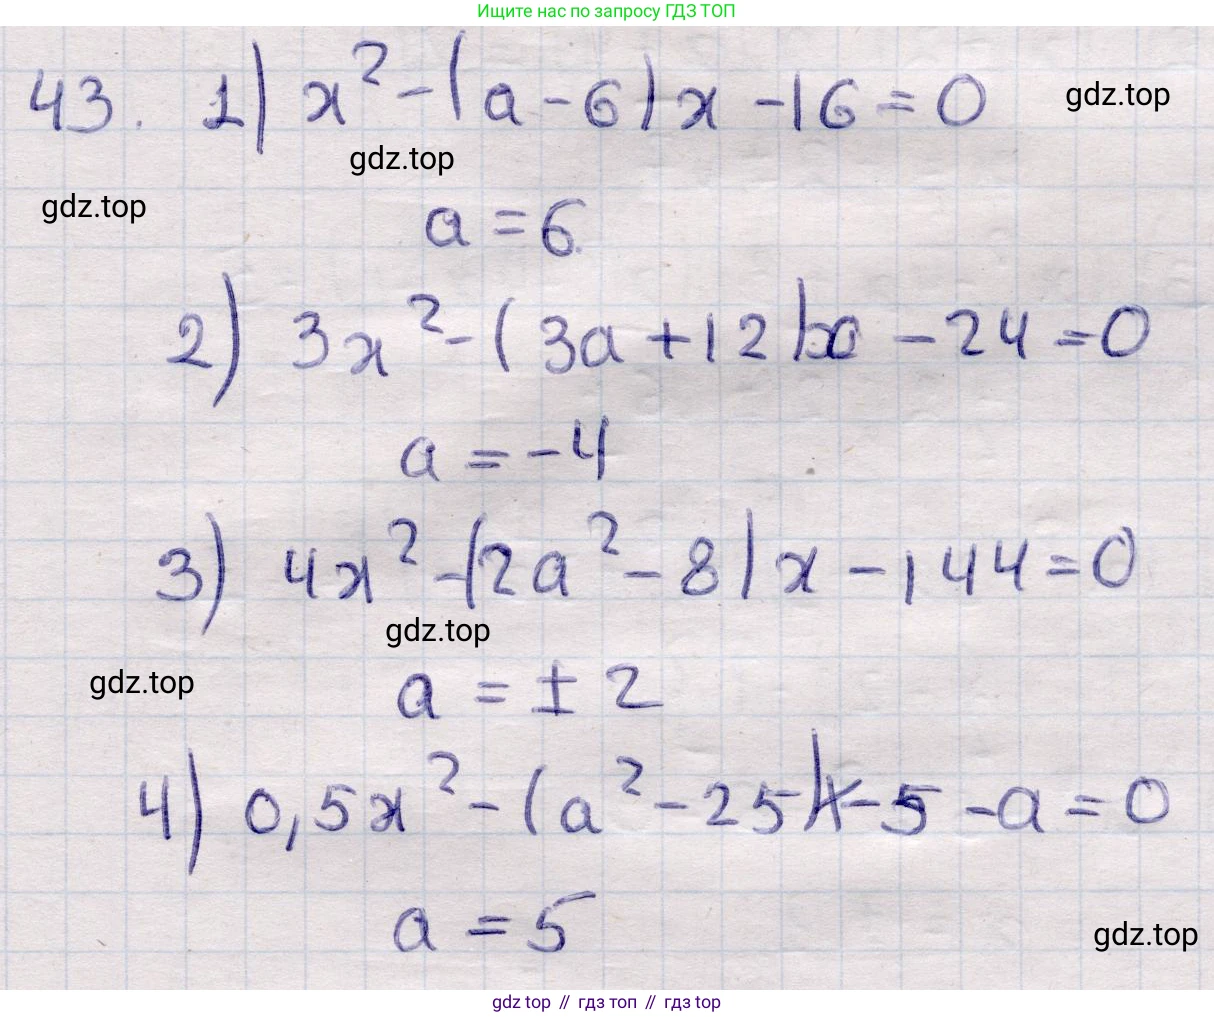 Ищите нас по запросу ГДЗ ТОП
43. 1) x² - (a - 6) x - 16 = 0
gdz.top
gdz.top
gdz.top
a = 6
2) 3x² - (3a + 12)x - 24 = 0
a = -4
3) 4x² - (2a² - 8) x - 144 = 0
gdz.top
gdz.top
a = ± 2
4) 0,5x² - (a² - 25)x - 5 - a = 0
a = 5
gdz.top
gdz top // гдз топ // gdz top